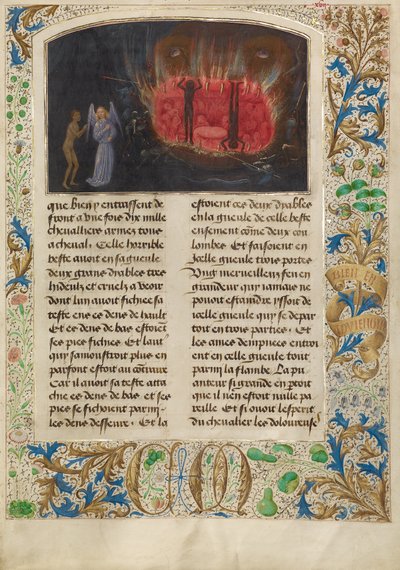 BIEN EN
AVIENGNE
que bien y entrassent de
front a une fois dix mille
chevalliers armez tous
a cheval. Celle horrible
beste avoit en sa gueule
deux grans dyables tres
hideulz et cruelz a veoir
dont lun avoit fichee sa
teste ens es dens de hault
Et es dens de bas estoient
ses piez fichiez. Et laut
qui samoustroit plus en
parfont estoit au contraire
Car il avoit sa teste atta
chie es dens de bas et ses
piez se fichoient parmy
les dens desseure. Et la
estoient ces deux dyables
en la gueule de celle beste
ensement come deux cou
lombes Et faisoient en
ycelle gueule trois portes
Ung merveilleux feu en
grandeur qui iamais ne
pouoit estaindre yssoit de
celle gueule qui se depar
toit en trois parties. Et
les ames dampnees entroi
ent en celle gueule tout
parmi la flambe. La pu
anteur si grande en
que il nen estoit nulle pa
reille. Et si avoit lesperit
du chevalier les doloureuse